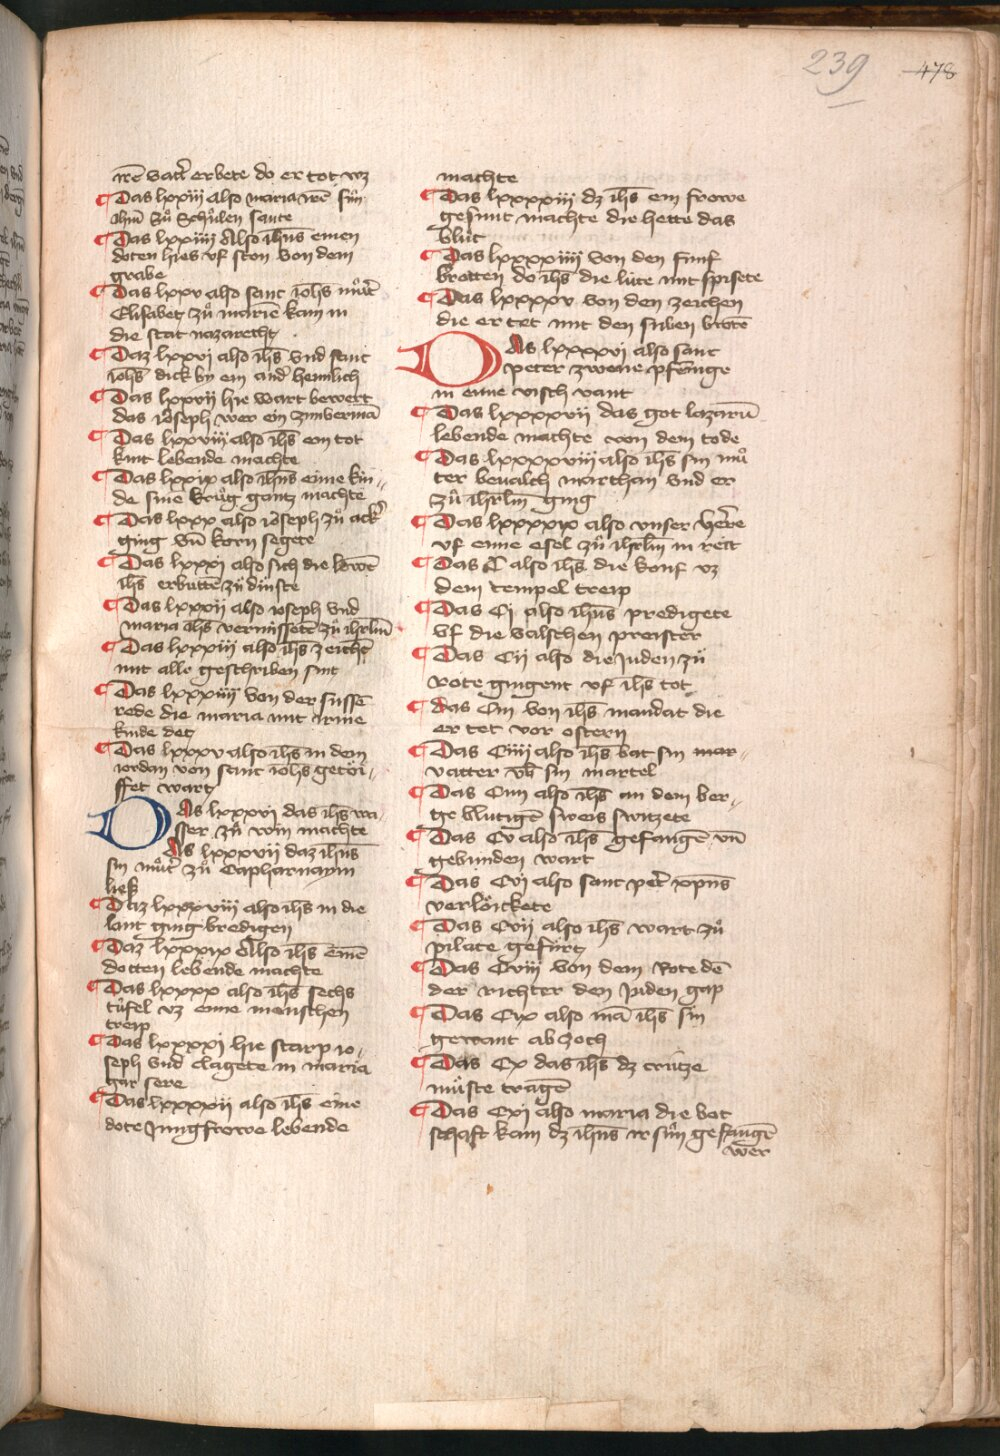 239 478
irē vatt' erbete do er tot wz
Das lxxiii also maria irē sún
ihm̄ zů Schůlen sante
Das lxxiiii Also ihūs einen
doten hies vf ston von dem
grabe
Das lxxv also sant iohs můt'
Elisabet zů marie kam in
die stat nazareth
Daz lxxvi also ihs vnd sant
iohs dick by ein and' heimlich
Das lxxvii hie wart bewert
das iôseph wer ein zimbermā
Das lxxviii also ihs ein tot
kint lebende machte
Das lxxix also ihūs eime kin„
de sine krůg gantz machte
Das lxxx also iôseph zů ack'
ging vn̄ korn segete
Das lxxxi also sich die lewēt
ihs erbuttē zů dinste
Das lxxxii also ioseph vnd
maria ihs vermissetē zů ihrlm̄
Das lxxxiii also ihs zeichē
mit alle geschriben sint
Das lxxxiiii von der sussē
rede die maria mit irme
kinde det
Das lxxxv also ihs in dem
iordan von sant iohs getöi„
ffet wart
DAs lxxxvi das ihs wa„
sser zů win machte
DAs lxxxvii daz ihūs
sin můt' zů Capharnaym
ließ
Daz lxxxviii also ihs in die
lant ging bredigen
Daz lxxxix Also ihs einē
dotten lebende machte
Das lxxxx also ihs sechs
túfel vz eime menschen
treip
Das lxxxxi hie starp io„
seph vnd clagete in maria
gar sere
Das lxxxxii also ihs eine
dote Jungfrowe lebende
machte
Das lxxxxiii dz ihs ein frowe
gesunt machte die hette das
blůt
Das lxxxxiiii von den fúnf
brotten do ihs die lúte mit spisete
Das lxxxxv von den zeichen
die er tet mit den siben brotē
DAs lxxxxvi also sant
peter zwene pfēnige
in eime visch vant
Das lxxxxvii das got lazarū
lebende machte von dem tode
Das lxxxxviii also ihs sin mů
ter beualch marthan vnd er
zů ihrlm̄ ging
Das lxxxxix also vnser h're
vf eime esel zů ihrlm̄ in reit
Das C also ihs die kouf vz
dem tempel treip
Das Ci also ihūs predigete
vf die valschen preister
Das Cii also die Juden zů
rote gingent vf ihs tot
das Ciii von ihs mandat die
er tet vor ostern
Das Ciiii also ihs bat sin mar„
vatter vb sin martel
Das Ciiii also ihs an dem ber„
ge blutigē sweis switzete
Das Cv also ihs gefangē vn̄
gebunden wart
Das Cvi also sant pet' xpūs
verlöickete
Das Cvii also ihs wart zů
pilate gefúrt
Das Cviii von dem Rote dē
der richter den Juden gap
Das Cix also mā ihs sin
gewant ab zoch
Das Cx das ihs dz crútze
můste tragē
Das Cxi also maria die bot
schaft kam dz ihūs ir sún gefangē
wer